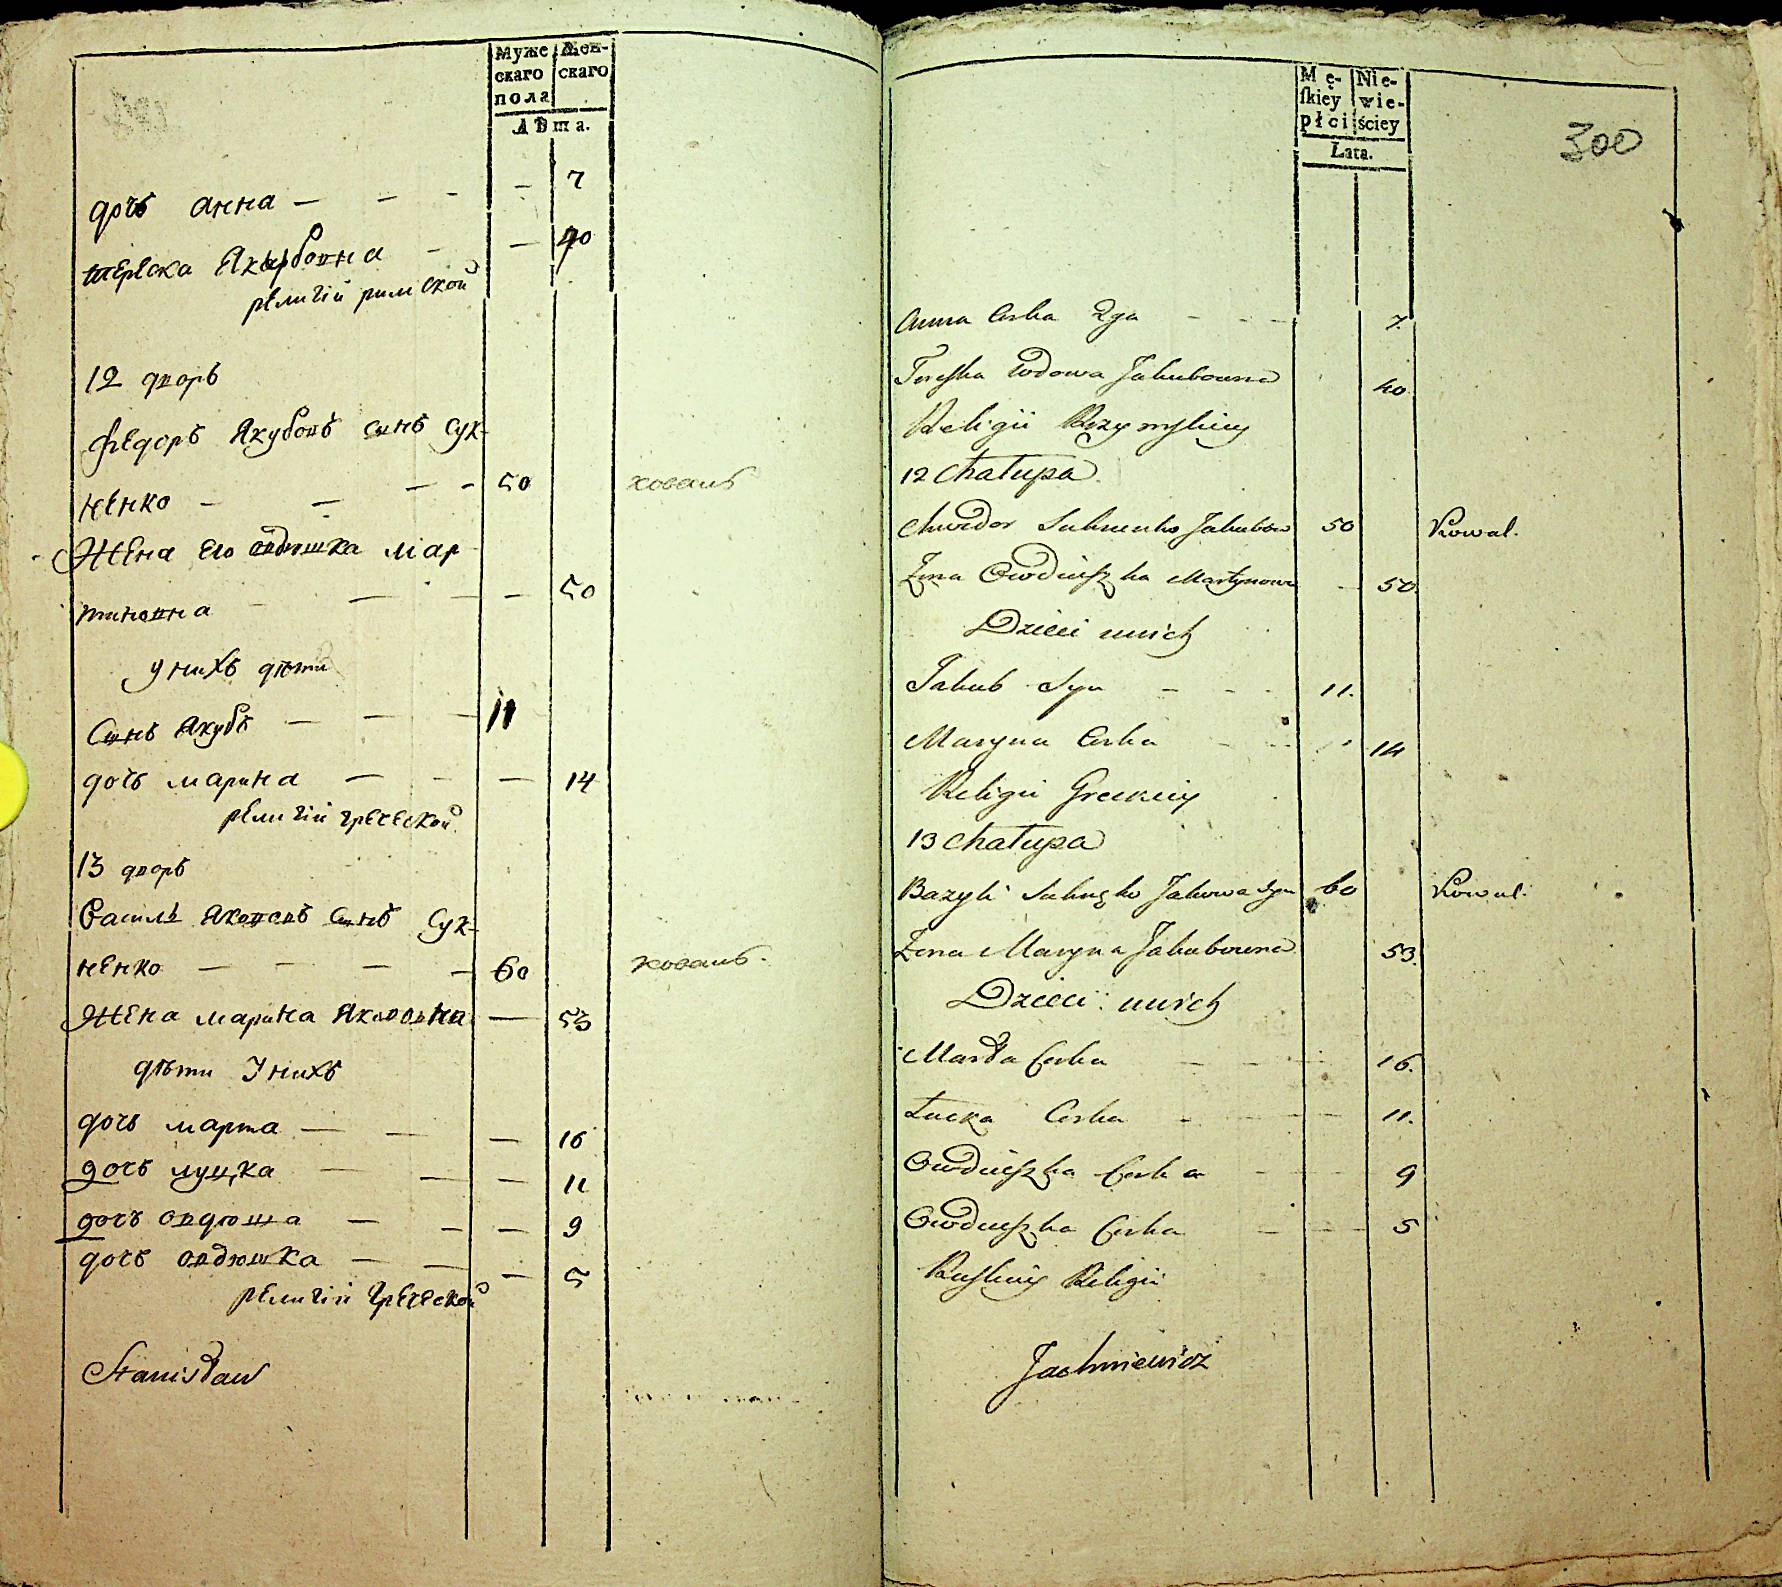 Муже Жен-
скаго скаго
пола
Лѣта.
дочь анна — — - — 7
терєска Якубовна - — 40
рєлигій римской
12 дворъ
Федоръ Якубовъ синъ Сук-
нєнко — — — - 50 коваль
Жєна єго овдюшка мар
тиновна — — — 50
у нихъ дѣти
Синъ Якубъ — — — 11
дочь марина — - — 14
рєлигій грєчєской
13 дворъ
Василь Якововъ Синъ Сук-
нєнко — - — — 60 коваль.
Жєна марина Якововна — 53
дѣти У нихъ
дочь марта — — — 16
дочь луцка — — — 11
дочь овдюша — — — 9
дочь овдюшка — — — 5
рєлигій Грєчєской
Stanisław
Mę- Nie-
ſkiey wie-
płci ściey
Lata.
300
Anna Corka 2ga - - - 7.
Tereska wdowa Jakubowna 40
Religii Rzymskiey
12 Chałupa
Chwedor Suknenko Jakubow 50 Kowal.
Żona Owdiuszka Martynowa — 50.
Dzieci unich
Jakub Syn - - - 11.
Maryna Corka - - - 14
Religii Greckiey
13 Chałupa
Bazyli Jakowa Syn 60 Kowal.
Żona Maryna Jakubowna 53.
Dzieci unich
Marta Corka - - - 16.
Łucka Corka - - - 11.
Owdiuszka Corka - - 9
Owdiuszka Corka - - - 5
Ruskiey Religii
Jachniewicz